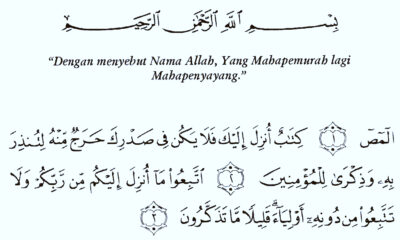 بِسْمِ اللَّهِ الرَّحْمَٰنِ الرَّحِيمِ
“Dengan menyebut Nama Allah, Yang Mahapemurah lagi
Mahapenyayang.”
الٓمٓصٓ ﴿١﴾ كِتَٰبٌ أُنزِلَ إِلَيْكَ فَلَا يَكُن فِى صَدْرِكَ حَرَجٌ مِّنْهُ لِتُنذِرَ
بِهِۦ وَذِكْرَىٰ لِلْمُؤْمِنِينَ ﴿٢﴾ ٱتَّبِعُوا۟ مَآ أُنزِلَ إِلَيْكُم مِّن رَّبِّكُمْ وَلَا
تَتَّبِعُوا۟ مِن دُونِهِۦٓ أَوْلِيَآءَ ۗ قَلِيلًا مَّا تَذَكَّرُونَ ﴿٣﴾